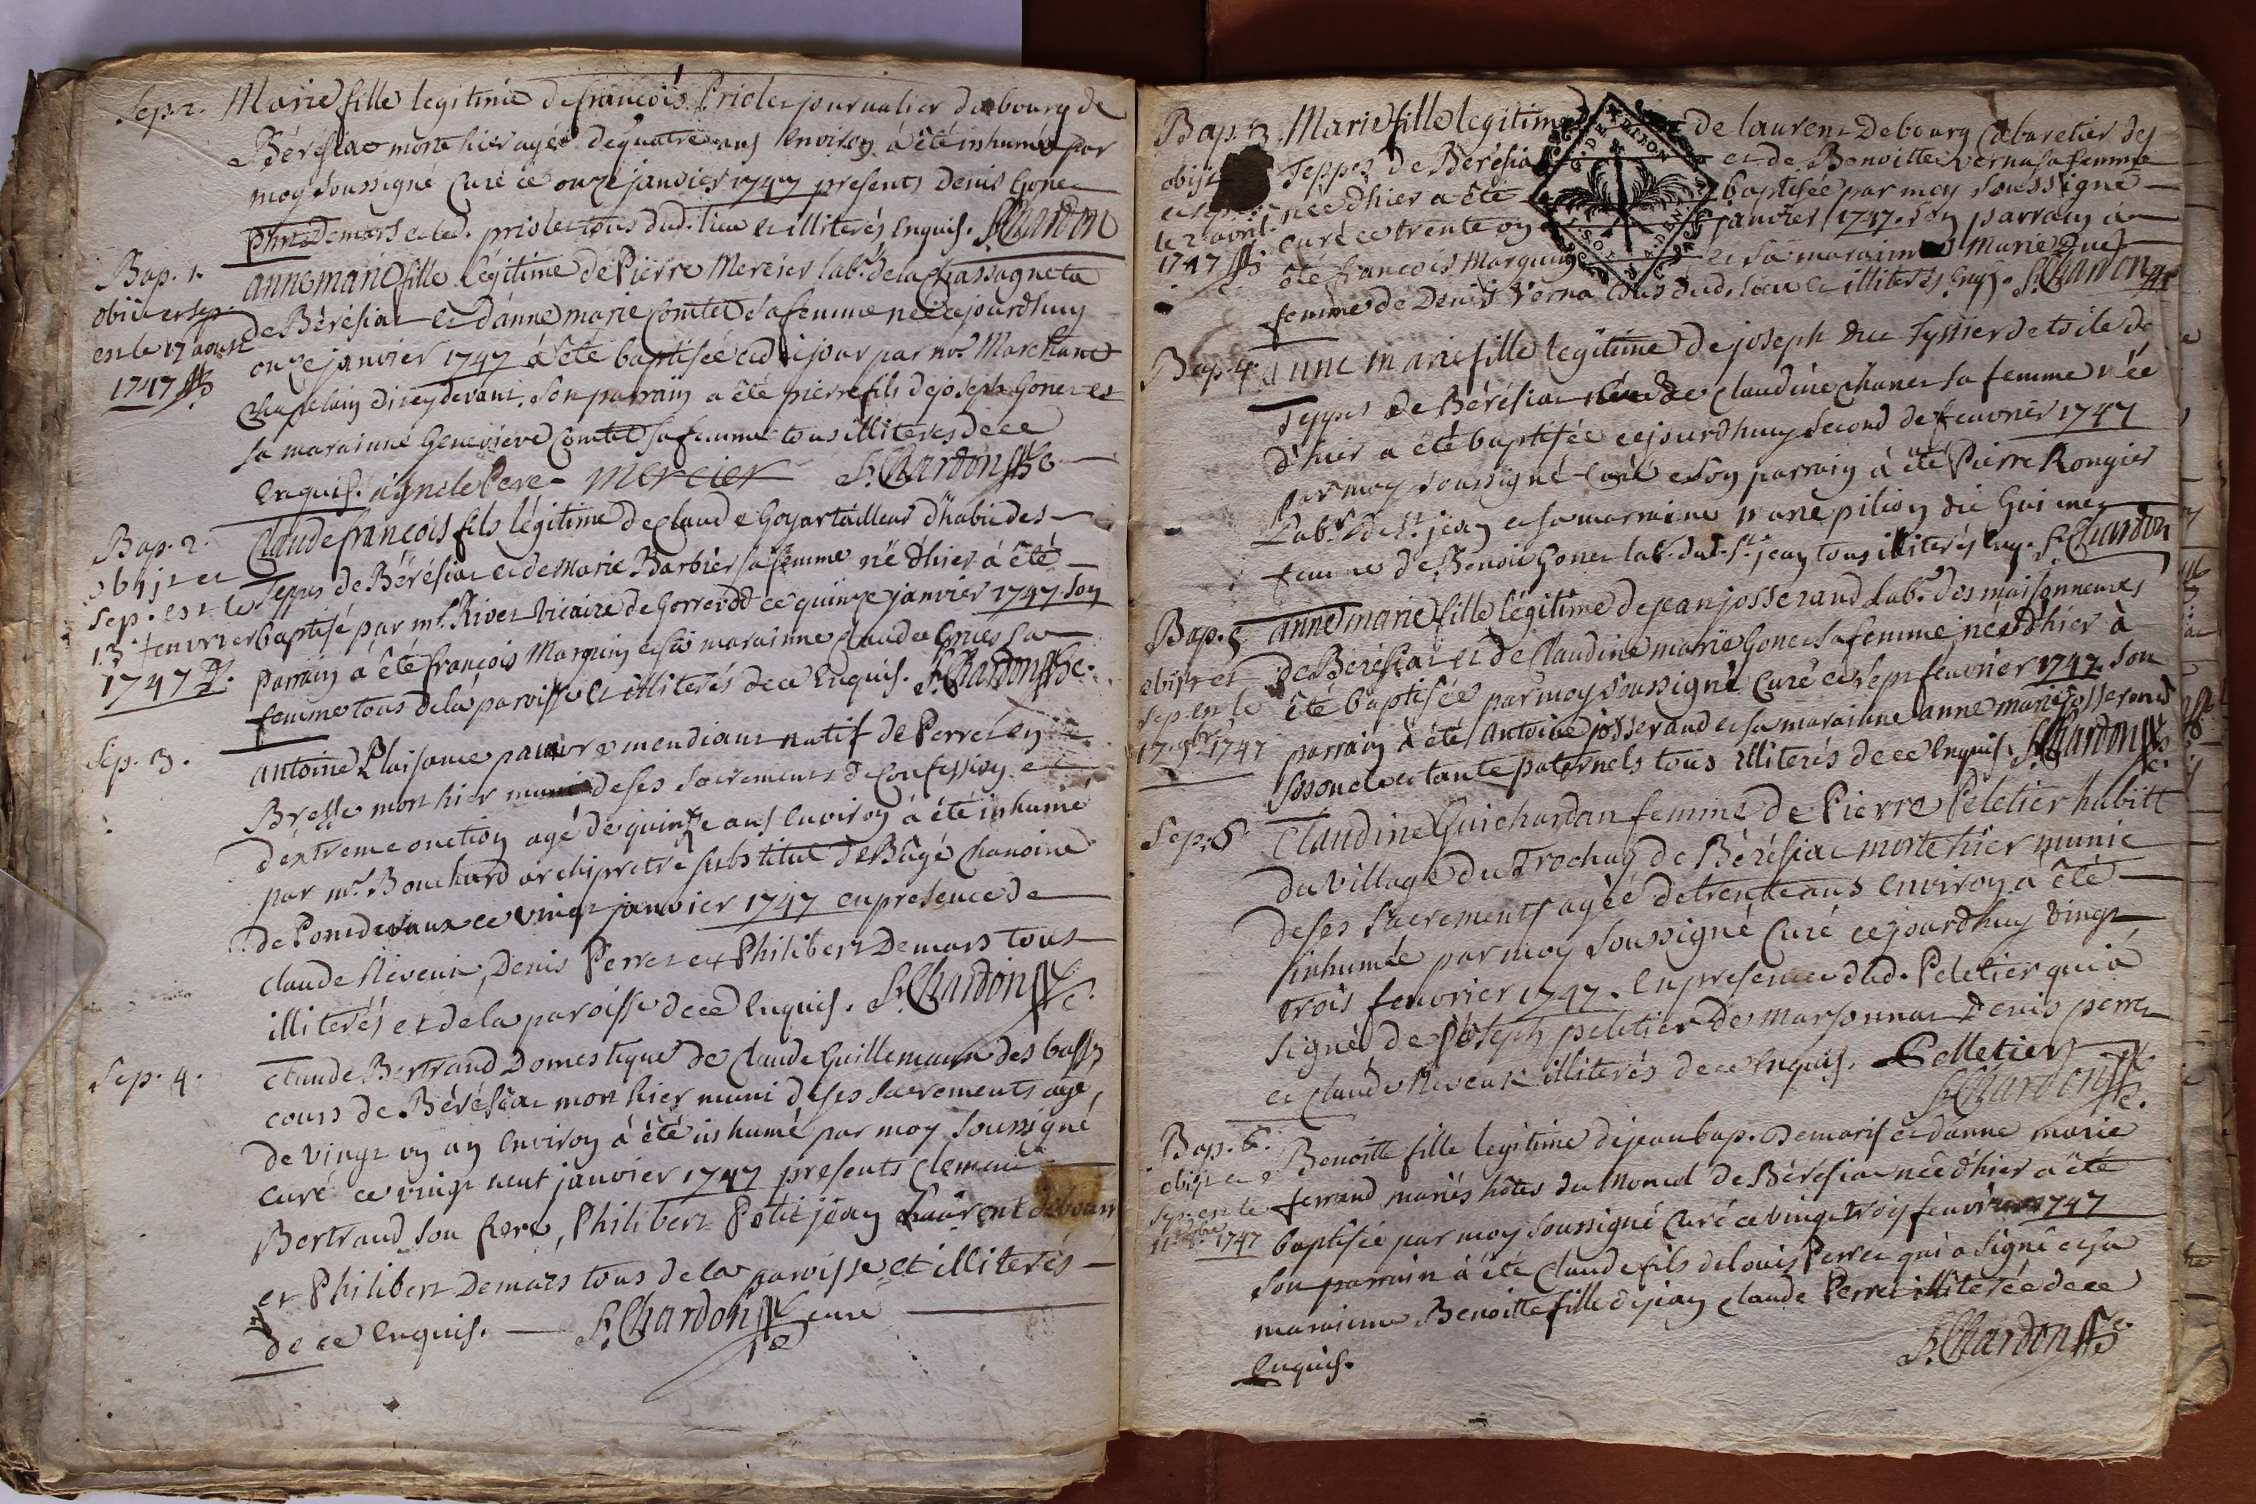 Sep. 2. Marie fille legitime de francois Priolet journalier du bourg de
Bérésiac morte hier agée de quatre ans Environ à été inhumée par
moy soussigné Curé ce onze janvier 1747 presents Denis Gonet
phts Demars et led. priolet tous dud. lieu et illiterés Enquis. Chardon
Bap. 1. anne marie fille légitime de Pierre Mercier lab.r de la Chassagneta
obiit et sep. de Bérésiat et d'anne marie Comtet sa femme née cejourdhuy
est le 17 aoust onze janvier 1747 à été baptisée led. jour par mr. Marchant
1747 Chapelain dicy devant. Son parrain a été pierre fils de joseph Gonet et
sa marainne Genevieve Comtet sa femme tous illiterés de ce
Enquis. signé le Pere - mercier Chardon
Bap. 2. Claude francois fils légitime de Claude Goyar tailleur d'habit des
obijt et Teppes de Bérésiat et de Marie Barbier sa femme né d'hier à été
sep. est le baptisé par mr. Rivet vicaire de Gorrevod ce quinze janvier 1747 Son
13 feuvrier parrain a été francois Marguin et sa marainne Claudee Grues sa
1747 femme tous de la paroisse et illiterés de ce Enquis. Chardon
Sep. 3. antoine Plaisance pauvre mendiant natif de Perret en
Bresse mort hier muni de ses sacrements de Confession et
d'extreme onction agé de quinze ans Environ à été inhumé
par mr. Bouchard archipretre substitut de Bâgé Chanoine
de Pondevaux ce vingt janvier 1747 en presence de
claude Neveu, Denis Perret et Philibert Demars tous
illiterés et de la paroisse de ce Enquis. Chardon
Sep. 4. Claude Bertrand Domestique de Claude Guillemaun des basses
cours de Bérésiat mort hier muni de ses sacrements agé
de vingt un an Environ à été inhumé par moy soussigné
curé ce vingt neuf janvier 1747 presents Clemend
Bertrand son frere, Philibert Petit jean Laurent debourg
et Philibert Demars tous de la paroisse et illiterés
de ce Enquis. Chardon curé
Bap. 3. Marie fille legitime de laurent Debourg Cabaretier des
obijt Teppes de Bérésia et de Benoitte verna sa femme
et sep. née d'hier a été baptisée par moy soussigné
le 2 avril curé ce trente un janvier 1747. Son parrain a
1747 été francois Marguin et sa marainne Marie Duc
femme de Denis Verna tous dud. lieu et illiterés Enq. Chardon
Bap. 4. anne marie fille legitime de joseph Duc Tyssier de toile de
Teppes de Bérésiat et de Claudine Chanet sa femme née
d'hier a été baptisée cejourdhuy second de feuvrier 1747
par moy soussigné Curé Son parrain à été Pierre Rongier
Lab.r de St. jean et sa marraine marie pilion die Guimet
femme de Benoit Gonet lab. dud. St. jean tous illiterés Enq. Chardon
Bap. 5. anne marie fille légitime de jean josserand Lab.r des maisonneuves
obijt et de Bérésiat et de Claudine marie Gonet sa femme née d'hier à
sep. est le été baptisée par moy soussigné Curé ce sept feuvrier 1747 Son
17. 9bre 1747 parrain à été antoine josserand et sa marainne anne marie josserand
ses oncle et tante paternels tous illiterés de ce Enquis. Chardon
Sep. 5. Claudine Guichardan femme de Pierre Peletier habitt
du village du Trochay de Bérésiac morte hier munie
de ses sacrements agée de trente ans Environ à été
inhumée par moy soussigné Curé cejourdhuy vingt
trois feuvrier 1747. En presence dud. Peletier qui à
signé de joseph peletier de marsonnat Denis perret
et Claude Neveu illiterés de ce Enquis. Pelletier
Chardon
Bap. 6. Benoitte fille legitime de jean bap. Demars et danne marie
obijt et ferrand mariés hôtes du Moncel de Bérésiac née d'hier à été
sep. est le baptisée par moy soussigné Curé ce vingt trois feuvrier 1747
1747 Son parrain à été Claude fils de louis Perret qui a signé et sa
marainne Benoitte fille de jean Claude Perret illiterée de ce
Enquis. Chardon